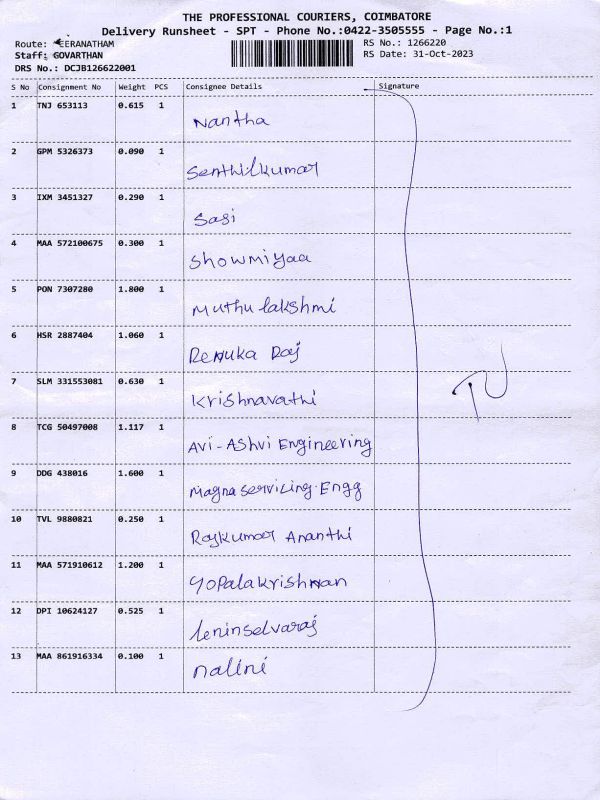 THE PROFESSIONAL COURIERS, COIMBATORE
Delivery Runsheet - SPT - Phone No.:0422-3505555 - Page No.:1
Route: KEERANATHAM
RS No.: 1266220
Staff: GOVARTHAN
RS Date: 31-Oct-2023
DRS No.: DCJB126622001
S No Consignment No Weight PCS Consignee Details Signature
1 TNJ 653113 0.615 1 Nantha
2 GPM 5326373 0.090 1 Senthilkumar
3 IXM 3451327 0.290 1 Sasi
4 MAA 572100675 0.300 1 Showmiyaa
5 PON 7307280 1.800 1 Muthu lakshmi
6 HSR 2887404 1.060 1 Renuka Raj
7 SLM 331553081 0.630 1 Krishnavathi
8 TCG 50497008 1.117 1 Avi-Ashvi Engineering
9 DDG 438016 1.600 1 Magna servicing.Engg
10 TVL 9880821 0.250 1 Rajkumar Ananthi
11 MAA 571910612 1.200 1 Gopalakrishnan
12 DPI 10624127 0.525 1 leninselvaraj
13 MAA 861916334 0.100 1 nalini